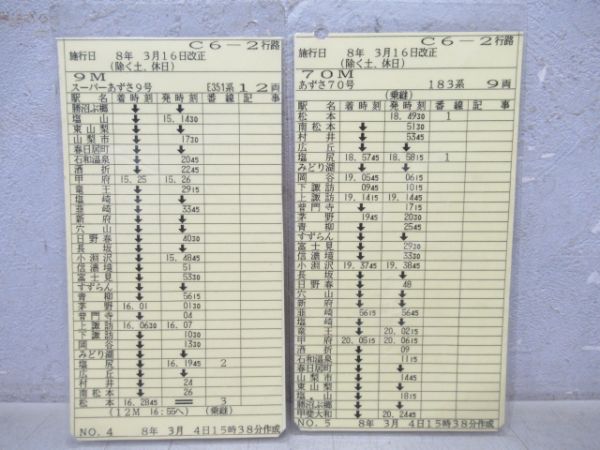 C6-2行路
施行日 8年 3月16日改正
(除く土、休日)
9M
スーパーあずさ9号 E351系 12両
駅名 着時刻 発時刻 番線 記事
勝沼ぶ郷 ↓ ↓
塩山 ↓ 15.1430
東山梨 ↓ ↓
山梨市 ↓ 1730
春日居町 ↓ ↓
石和温泉 ↓ 2045
酒折 ↓ 2245
甲府 15.25 15.26
竜王 ↓ 2915
塩崎 ↓ ↓
韮崎 ↓ 3345
新府 ↓ ↓
穴山 ↓ ↓
日野春 ↓ 4030
長坂 ↓ ↓
小淵沢 ↓ 15.4845
信濃境 ↓ 51
富士見 ↓ 5330
すずらん ↓ ↓
青柳 ↓ 5615
茅野 16.01 0130
普門寺 ↓ 04
上諏訪 16.0630 16.07
下諏訪 ↓ 1030
岡谷 ↓ 1330
みどり湖 ↓ ↓
塩尻 ↓ 16.1945 2
広丘 ↓ ↓
村井 ↓ 24
南松本 ↓ 26
松本 16.2845 = 3
(12M 16:55へ) (乗継)
NO.4 8年 3月 4日15時38分作成
C6-2行路
施行日 8年 3月16日改正
(除く土、休日)
70M
あずさ70号 183系 9両
(乗継)
駅名 着時刻 発時刻 番線 記事
松本 18.4930 1
南松本 ↓ 5130
村井 ↓ 5345
広丘 ↓ ↓
塩尻 18.5745 18.5815 1
みどり湖 ↓ ↓
岡谷 19.0545 0615
下諏訪 0945 1015
上諏訪 19.1415 19.1445
普門寺 ↓ 1715
茅野 1945 2030
青柳 ↓ 2545
すずらん ↓ ↓
富士見 ↓ 2930
信濃境 ↓ 3330
小淵沢 19.3745 19.3845
長坂 ↓ ↓
日野春 ↓ 48
穴山 ↓ ↓
新府 ↓ ↓
韮崎 5615 5645
塩崎 ↓ ↓
竜王 ↓ 20.0215
甲府 20.0515 20.0615
酒折 ↓ 09
石和温泉 ↓ 1115
春日居町 ↓ ↓
山梨市 ↓ 1445
東山梨 ↓ ↓
塩山 ↓ 1815
勝沼ぶ郷 ↓ ↓
甲斐大和 ↓ 20.2445
NO.5 8年 3月 4日15時38分作成